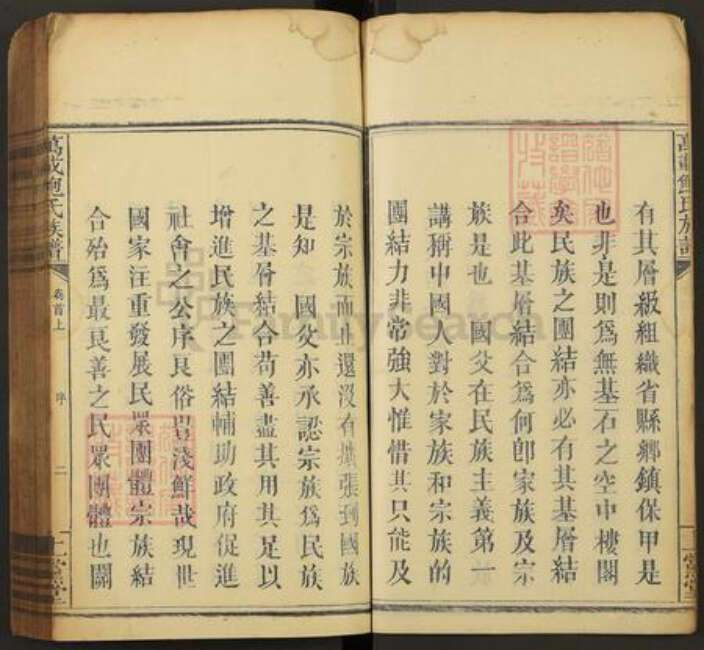 有其層級組織省縣鄉鎮保甲是
也非是則爲無基石之空中樓閣
矣民族之團結亦必有其基層結
合此基層結合爲何卽家族及宗
族是也　國父在民族主義第一
講稱中國人對於家族和宗族的
團結力非常強大惟惜其只能及
於宗族而止還沒有擴張到國族
是知　國父亦承認宗族爲民族
之基層結合苟善盡其用其足以
增進民族之團結輔助政府促進
社會之公序良俗豈淺鮮哉現世
國家注重發展民眾團體宗族結
合殆爲最良善之民眾團體也關
萬載鮑氏族譜
卷首上
序
二
上黨堂
FamilySearch